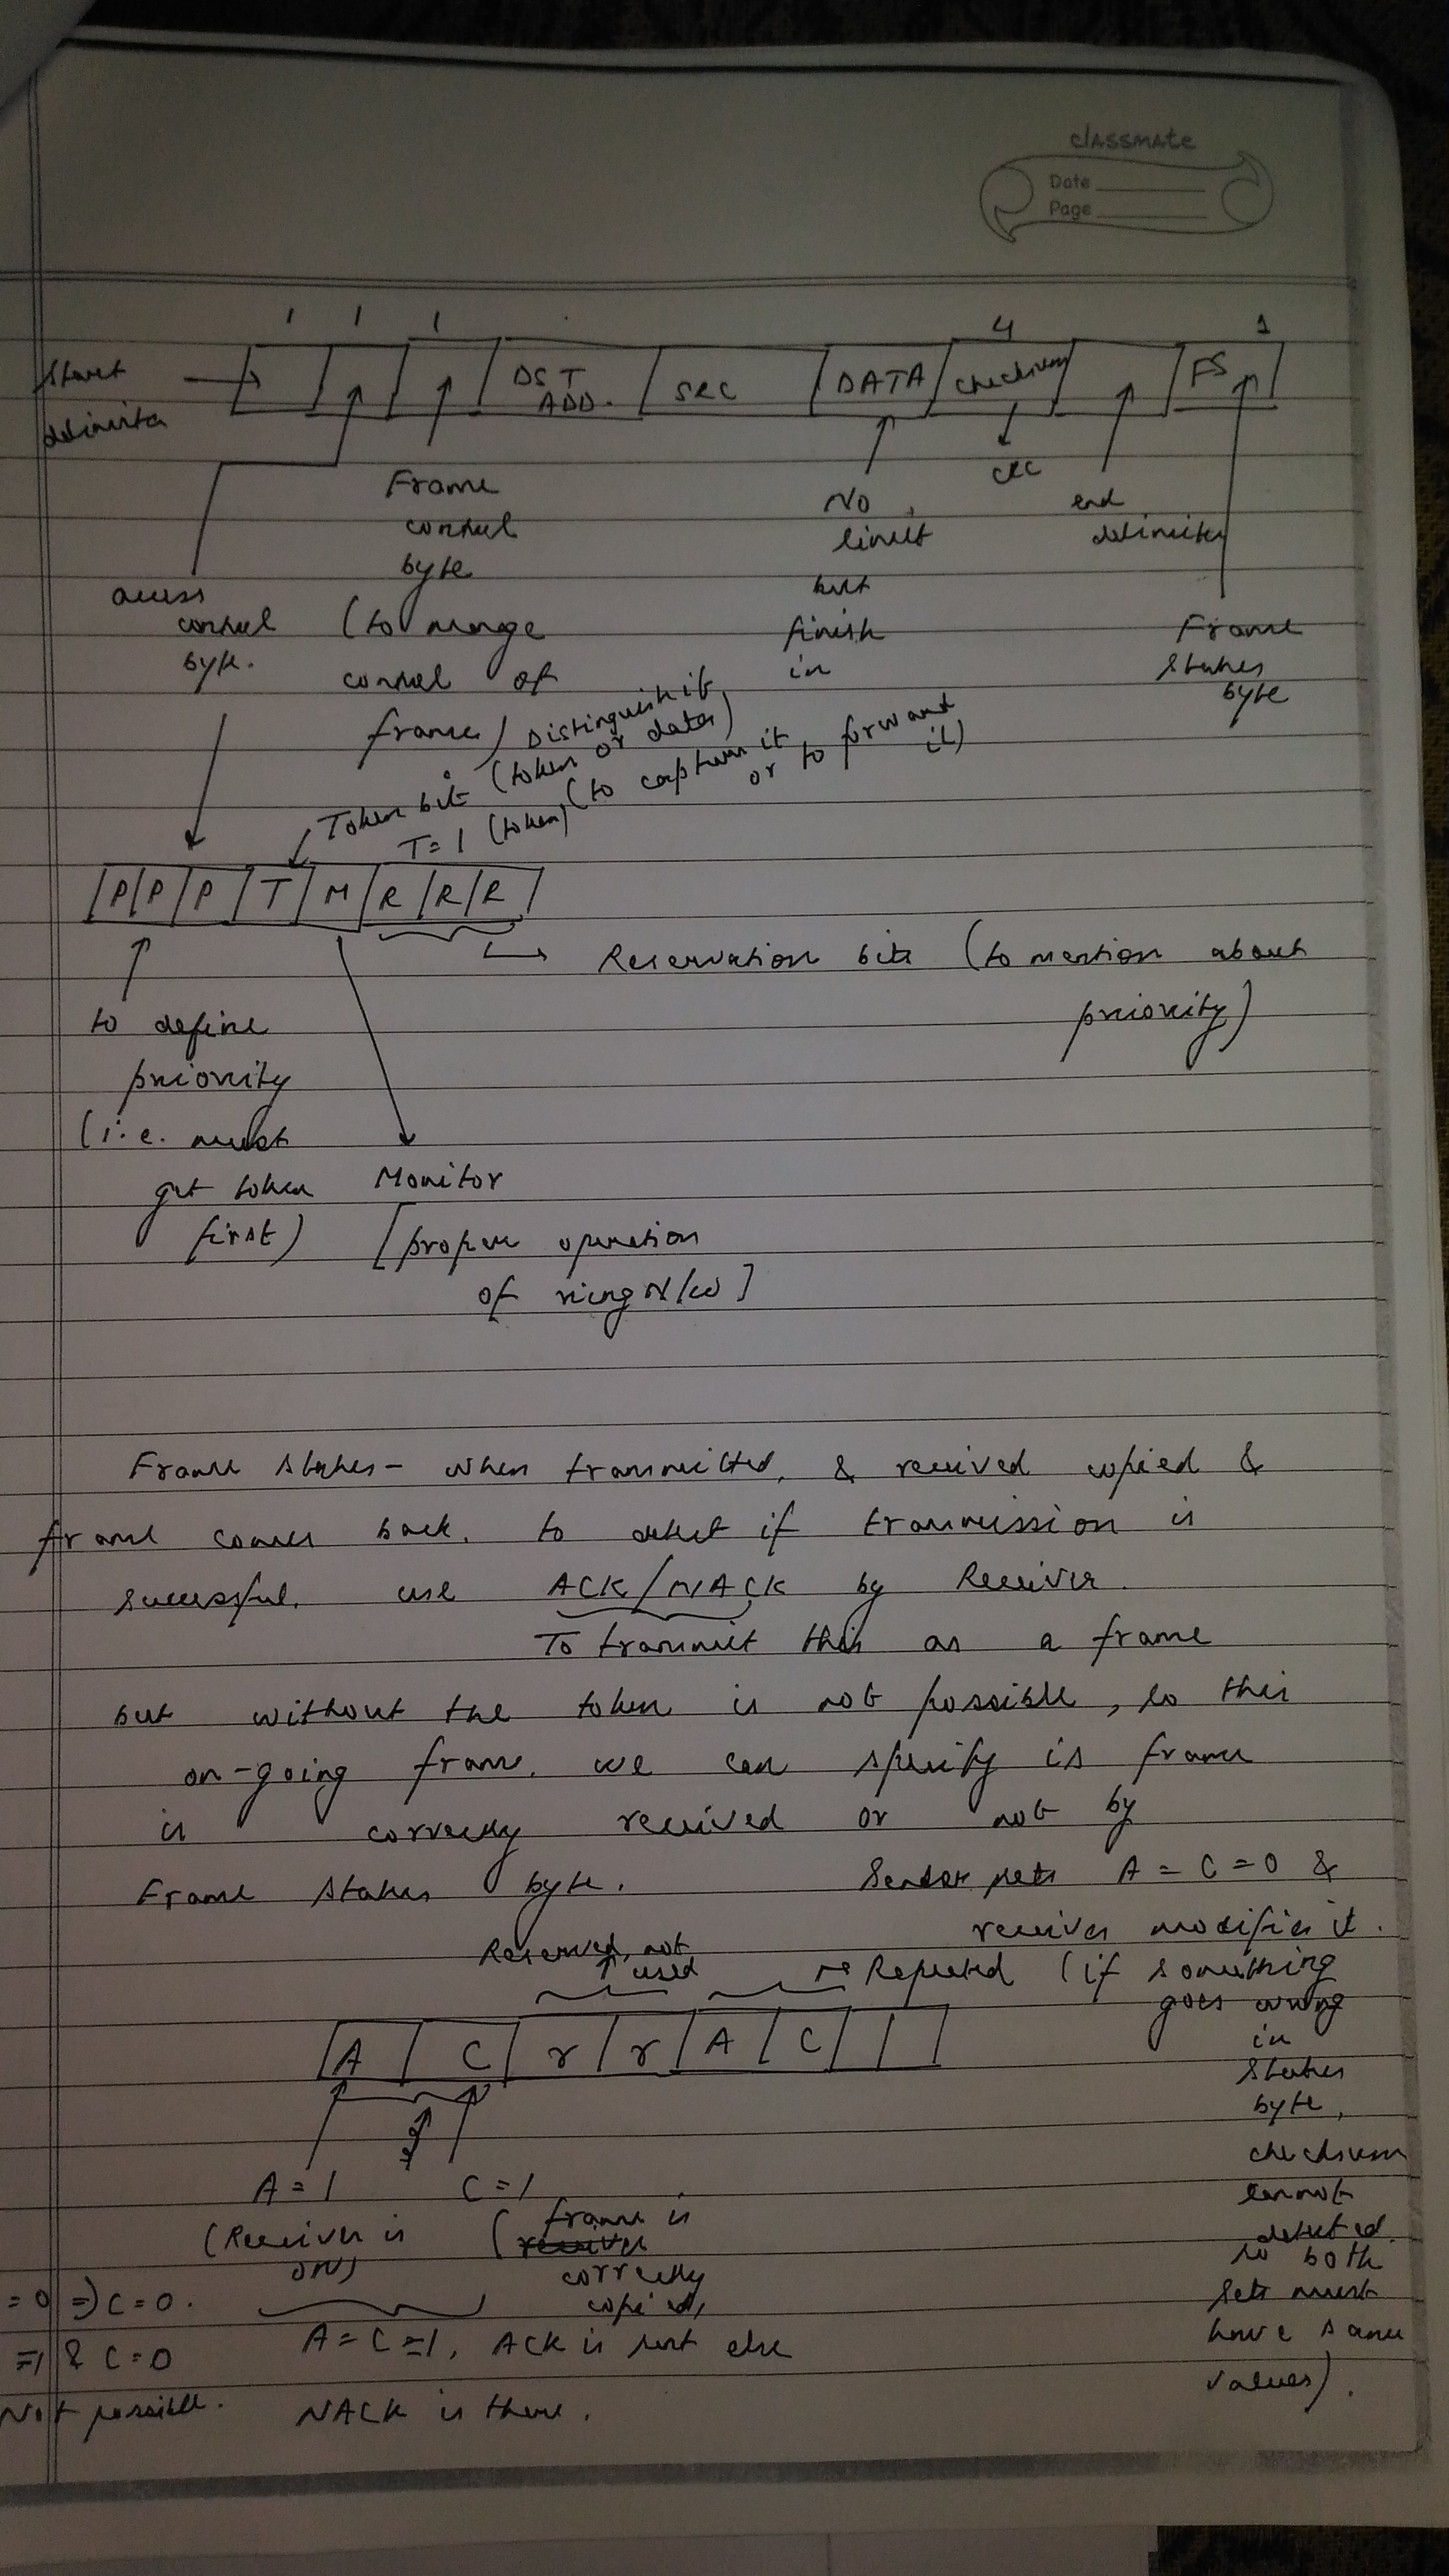 classmate
Date
Page
1 1 1 4 1
Start delimiter
DST ADD.
SRC
DATA
checksum
FS
CRC
Frame
control
byte
(to
control of
frame)
access
control
byte.
No
limit
but
finish
in
end
delimiter
Frame
status
byte
Token bit (token or data)
Distinguish it
T=1 (token) (to capture it
or to forward
it)
P P P T M R R R
Reservation bits (to mention about
priority)
to define
priority
(i.e. must
get token
first)
Monitor
[proper operation
of ring N/w]
Frame status - when transmitted, & received copied &
frame comes back. to detect if transmission is
successful. use ACK/NACK by Receiver.
To transmit this as a frame
but without the token is not possible, so this
on-going frame. we can specify is frame
is correctly received or not by
Frame status byte.
Sender sets A = C = 0 &
receiver modifies it.
Reserved, not
used
Repeated (if something
goes wrong
in
status
byte,
checksum
cannot
detected.
so both
sets must
have same
values).
A C r r A C
A = 1
(Receiver is
ON)
C = 1
(frame is
correctly
copied)
= 0 => C = 0.
=1 & C = 0
Not possible.
A = C = 1, ACK is sent else
NACK is there.